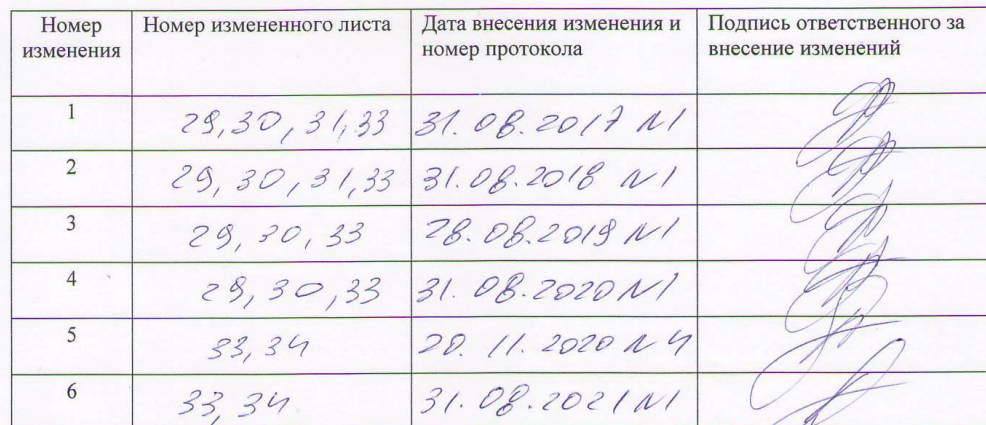 Номер изменения | Номер измененного листа | Дата внесения изменения и номер протокола | Подпись ответственного за внесение изменений
1 | 29, 30, 31, 33 | 31.08.2017 №1
2 | 29, 30, 31, 33 | 31.08.2018 №1
3 | 29, 30, 33 | 28.08.2019 №1
4 | 29, 30, 33 | 31.08.2020 №1
5 | 33, 34 | 20.11.2020 №4
6 | 33, 34 | 31.08.2021 №1